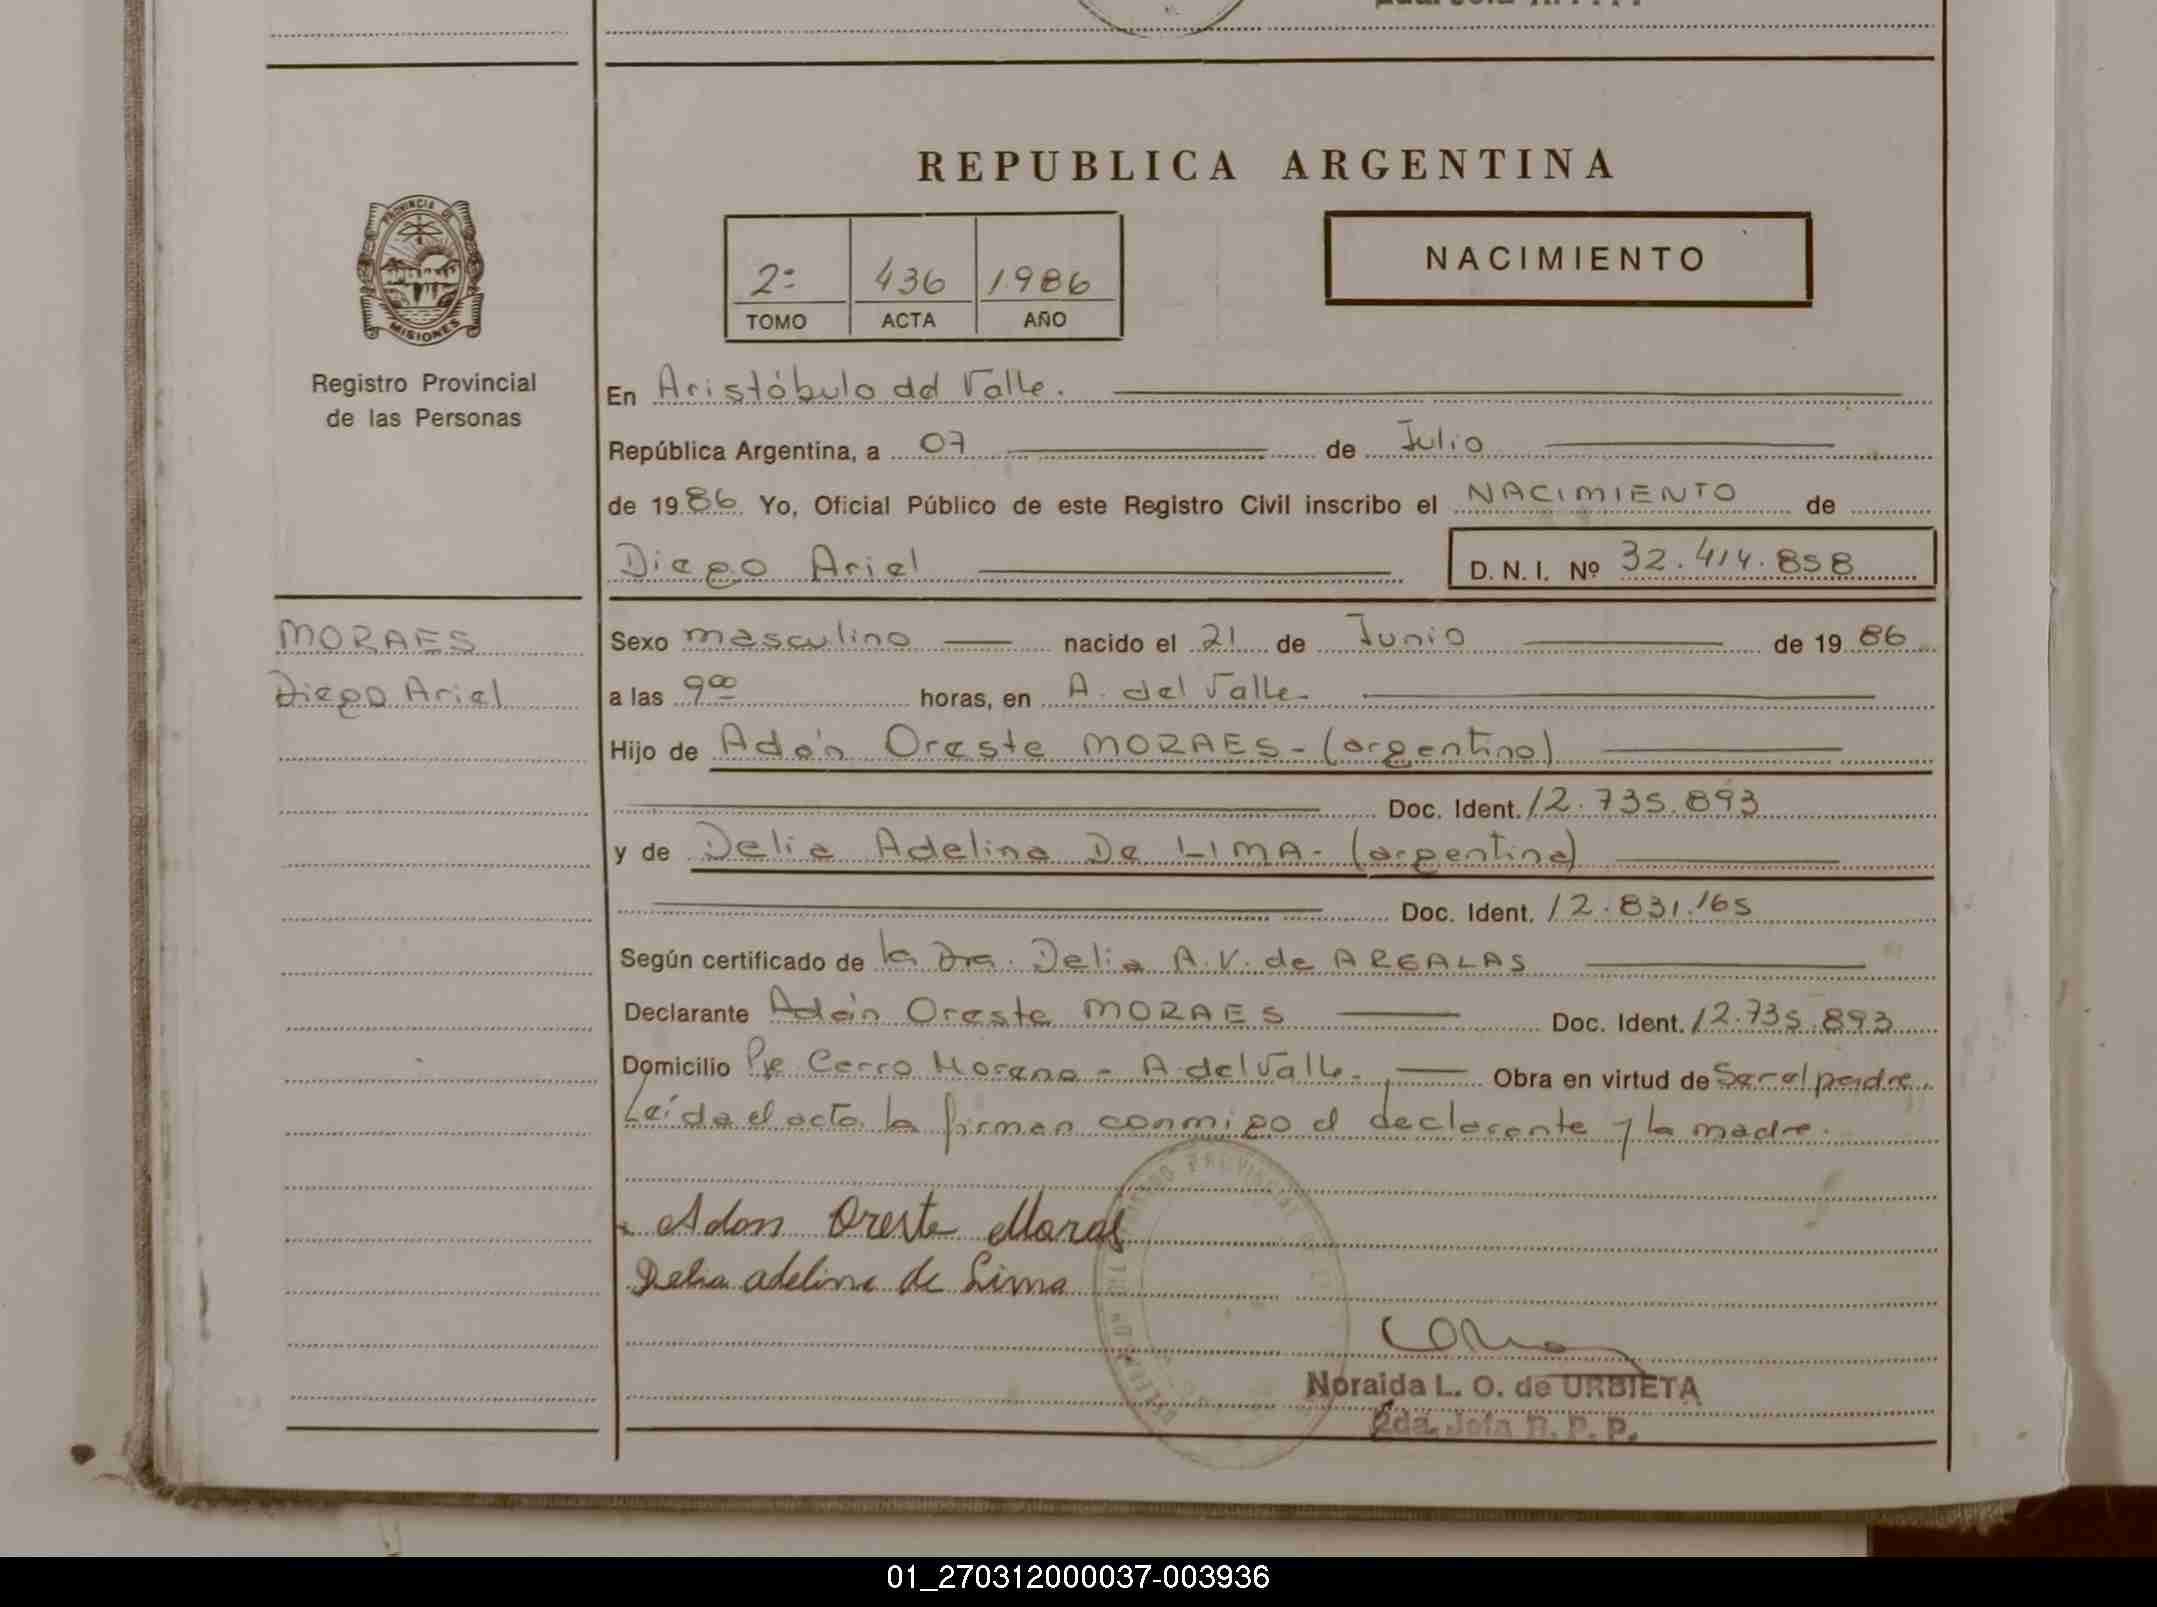 REPUBLICA ARGENTINA
2º 436 1986
TOMO ACTA AÑO
NACIMIENTO
PROVINCIA DE
MISIONES
Registro Provincial
de las Personas
En Aristóbulo del Valle.
República Argentina, a 07 de Julio
de 1986 Yo, Oficial Público de este Registro Civil inscribo el NACIMIENTO de
Diego Ariel D. N. I. Nº 32.414.858
MORAES
Diego Ariel
Sexo masculino nacido el 21 de Junio de 1986
a las 9⁰⁰ horas, en A. del Valle.
Hijo de Adón Oreste MORAES - (argentino)
Doc. Ident. 12.735.893
y de Delia Adelina De LIMA - (argentina)
Doc. Ident. 12.831.165
Según certificado de la Dra. Delia A. V. de ARGALAS
Declarante Adón Oreste MORAES Doc. Ident. 12.735.893
Domicilio Pje Cerro Moreno - A del Valle. Obra en virtud de Ser el padre.
Leída el acta la firman conmigo el declarante y la madre.
Adon Oreste Moraes
Delia adelina de Lima
Noraida L. O. de URBIETA
2da. Jefa R. P. P.
01_270312000037-003936